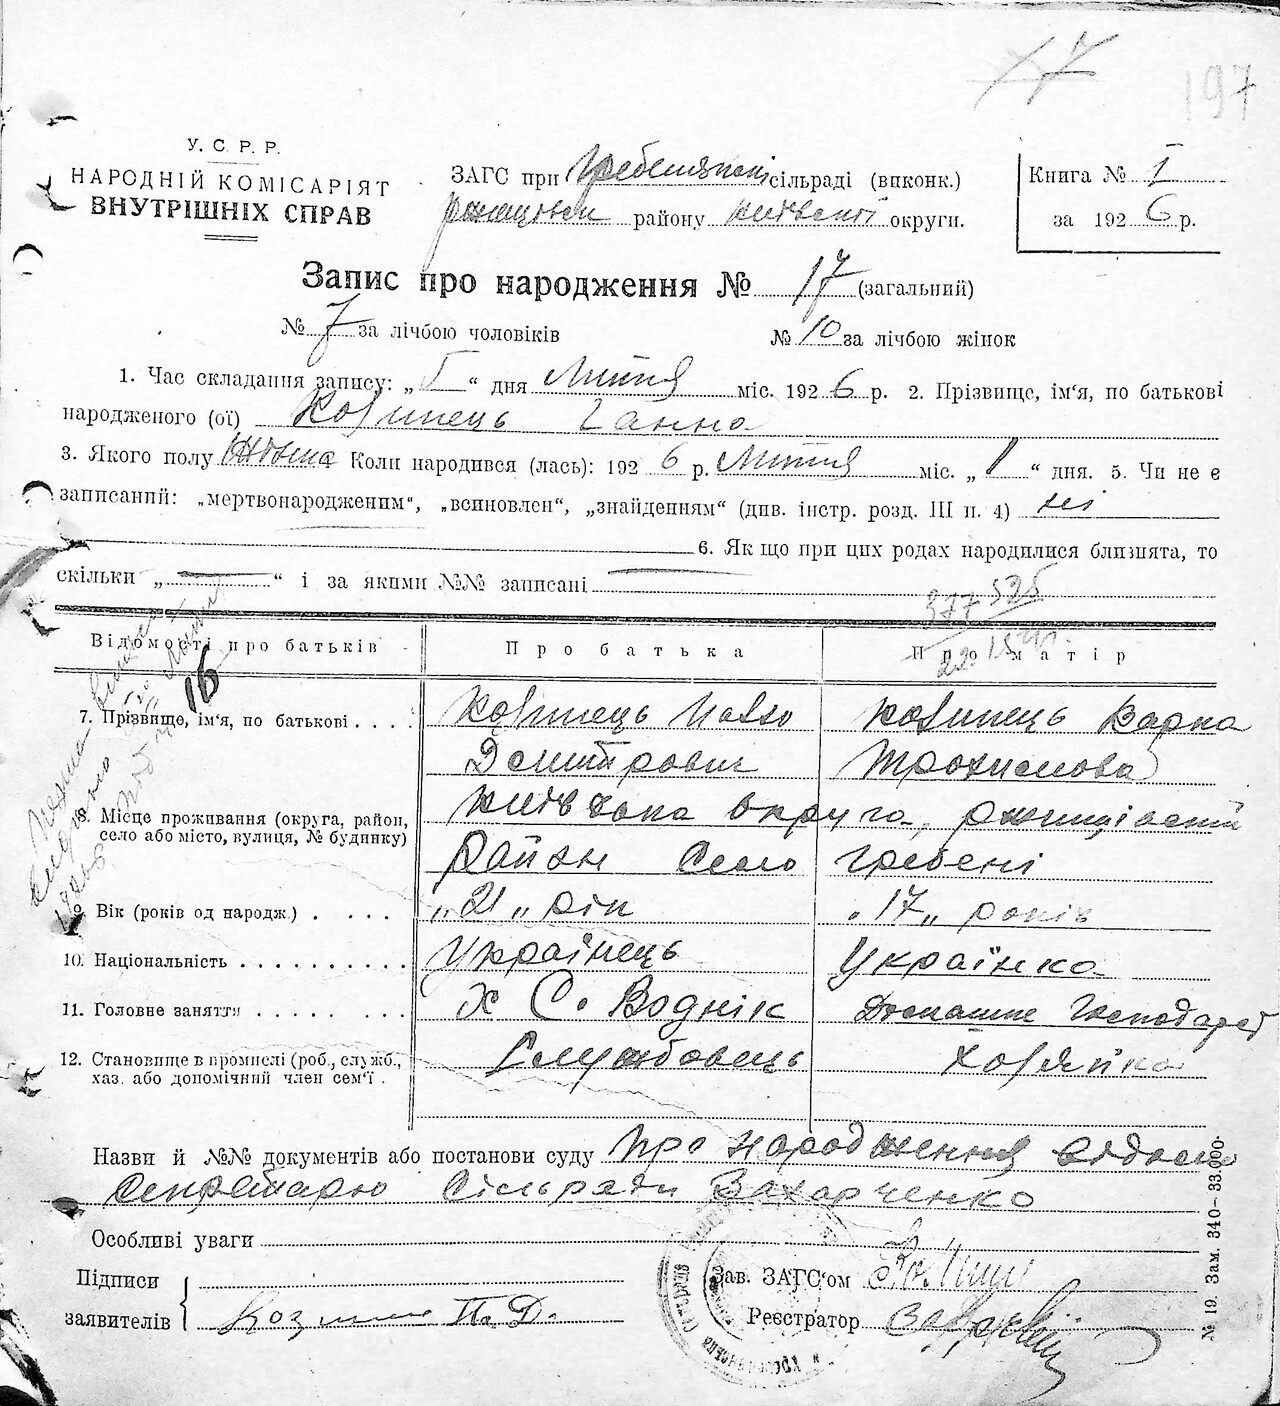 17
197
У. С. Р. Р.
НАРОДНІЙ КОМІСАРІЯТ
ВНУТРІШНІХ СПРАВ
ЗАГС при сільраді (виконк.)
району округи.
Книга № I
за 1926 р.
Запис про народження № 17 (загальний)
№ 7 за лічбою чоловіків № 10 за лічбою жінок
1. Час складання запису: „ “ дня Липня міс. 1926 р. 2. Прізвище, ім‘я, по батькові
народженого (ої) Козинець Ганна
3. Якого полу Коли народився (лась): 1926 р. Липня міс. „1“ дня. 5. Чи не є
записаний: „мертвонародженим“, „всиновлен“, „знайденням“ (див. інстр. розд. III п. 4) ні
6. Як що при цих родах народилися близнята, то
скільки „ “ і за якими №№ записані
377
Відомості про батьків Про батька Про матір
16
7. Прізвище, ім‘я, по батькові . . . . Козинець Козинець Варка
Демитрович Трохимова
8. Місце проживання (округа, район,
село або місто, вулиця, № будинку)
Київска округа,
Район Село Гребені
9. Вік (років од народж.) . . . . „21„ рік „17„ років
10. Національність . . . . . . . . . . Українець Українка
11. Головне заняття . . . . . . . . Х С. Воднік Домашне
12. Становище в промислі (роб., служб.,
хаз. або допомічний член сем‘ї . Службовець Хозяйка
Назви й №№ документів або постанови суду Про народження
секретарю Сільради Захарченко
Особливі уваги
Підписи
заявителів П. Д.
Зав. ЗАГС‘ом
Реєстратор
№ 19. Зам. 340–33.000.